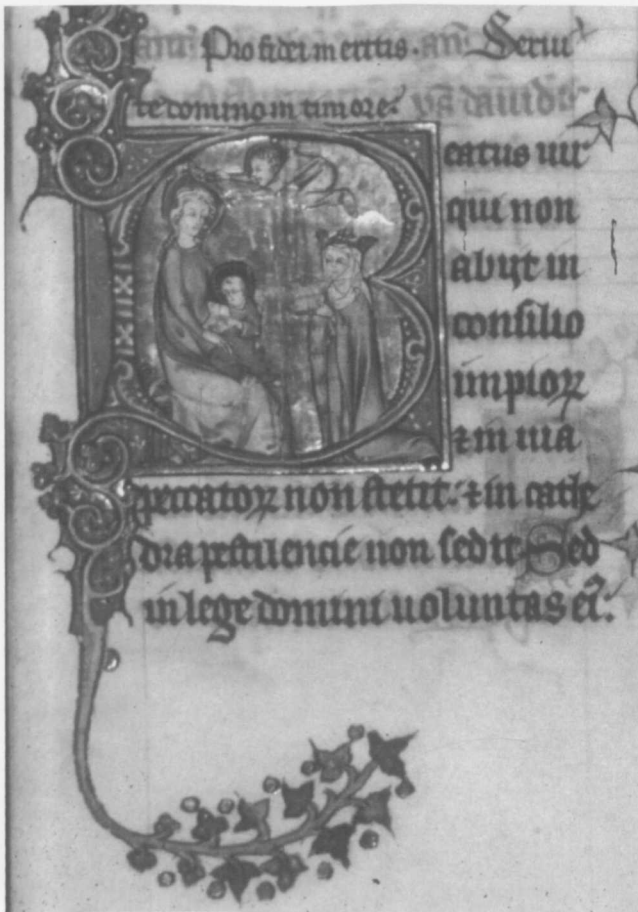 Pro fidei meritis. an̄ Serui
te domino in timore.
Beatus uir
qui non
abijt in
consilio
impioꝝ
⁊ in uia
peccatoꝝ non stetit. ⁊ in cathe
dra pestilencie non sedit. Sed
in lege domini uoluntas eiꝰ.